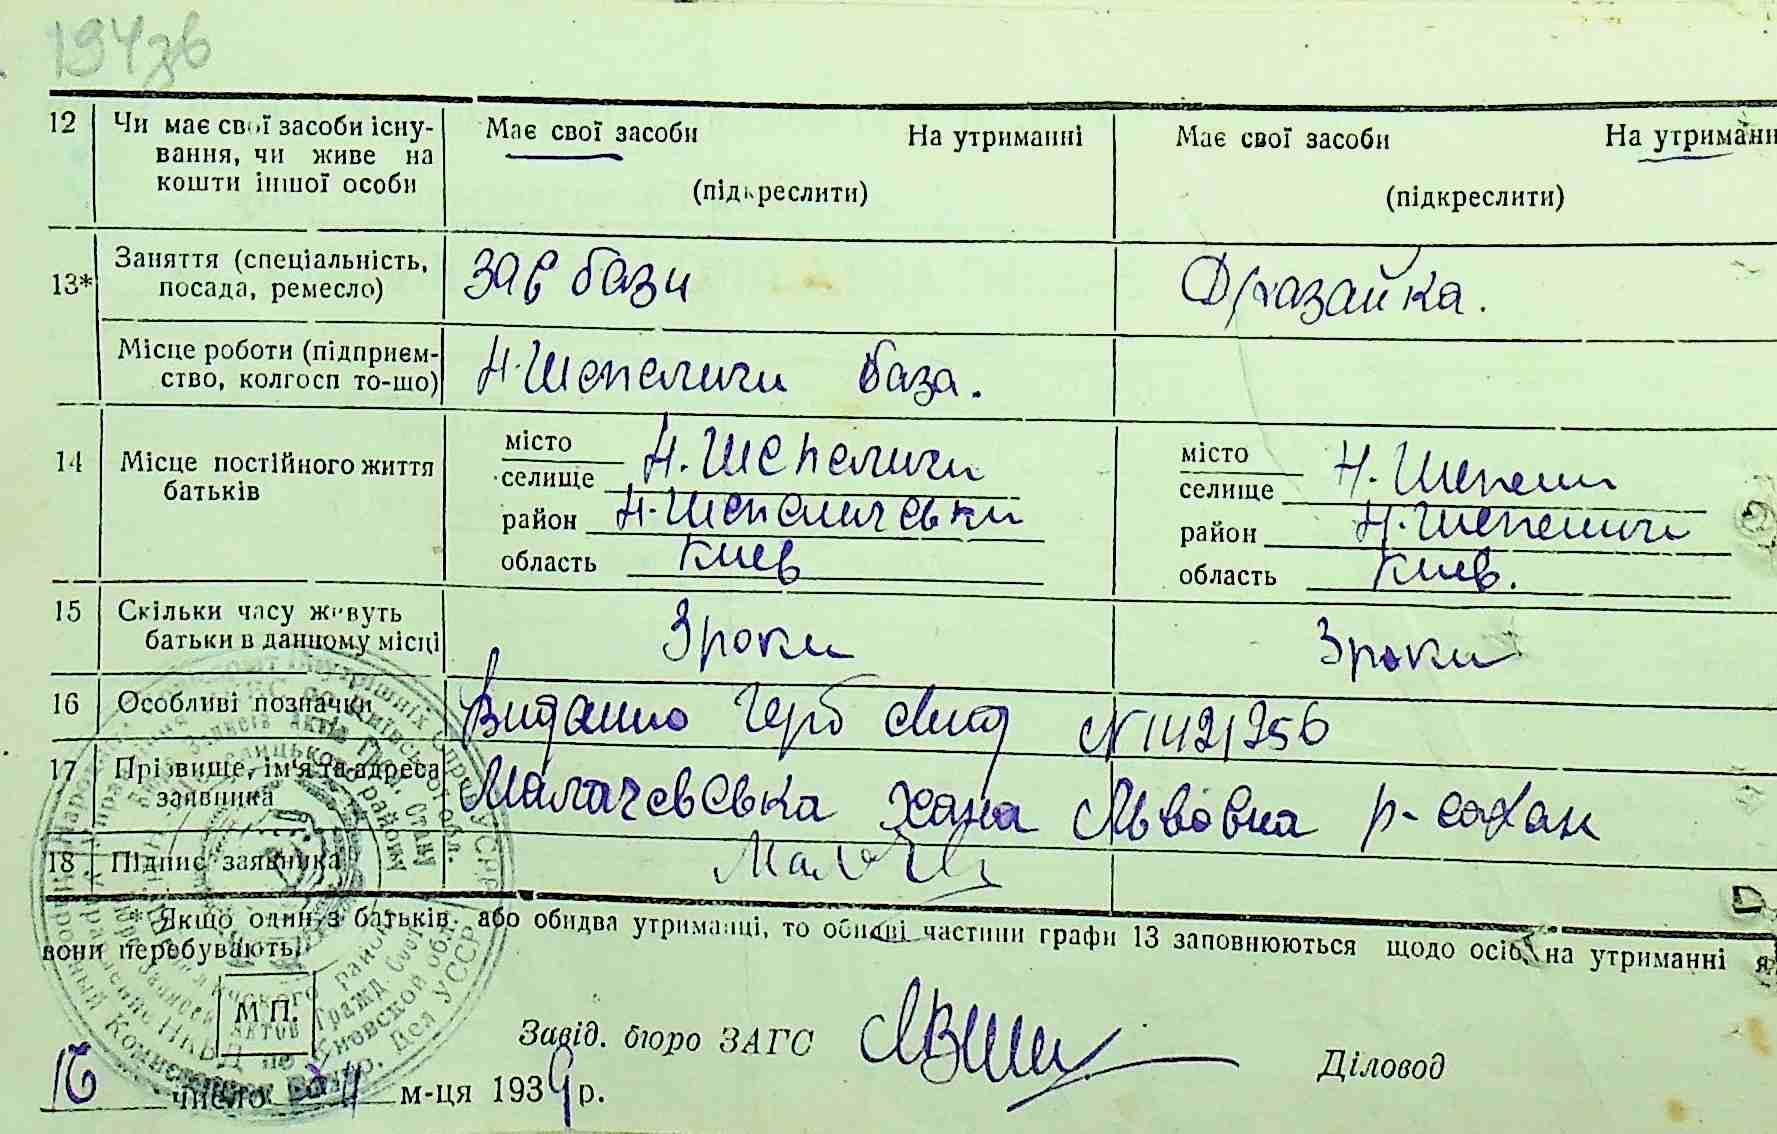 194зв
12 Чи має свої засоби існу-
вання, чи живе на
кошти іншої особи
Має свої засоби На утриманні
(підкреслити)
Має свої засоби На утриманн
(підкреслити)
13* Заняття (спеціальність,
посада, ремесло)
Зав бази
Місце роботи (підприєм-
ство, колгосп то-що)
Н. Шепеличи база.
14 Місце постійного життя
батьків
місто
селище Н. Шепеличи
район Н. Шепеличевски
область Киев
місто
селище Н.
район Н. Шепеличи
область Киев.
15 Скільки часу живуть
батьки в данному місці
3 роки
3 роки
16 Особливі позначки
Виданно Герб N 142/256
17 Прізвище, ім'я та адреса
заявника
Малачевська Хана Львовна
18 Підпис заявника
* Якщо один з батьків або обидва утриманці, то обидві частини графи 13 заповнюються щодо осіб, на утриманні я
вони перебувають.
М.П.
Завід. бюро ЗАГС
Діловод
16 число 11 м-ця 1939 р.